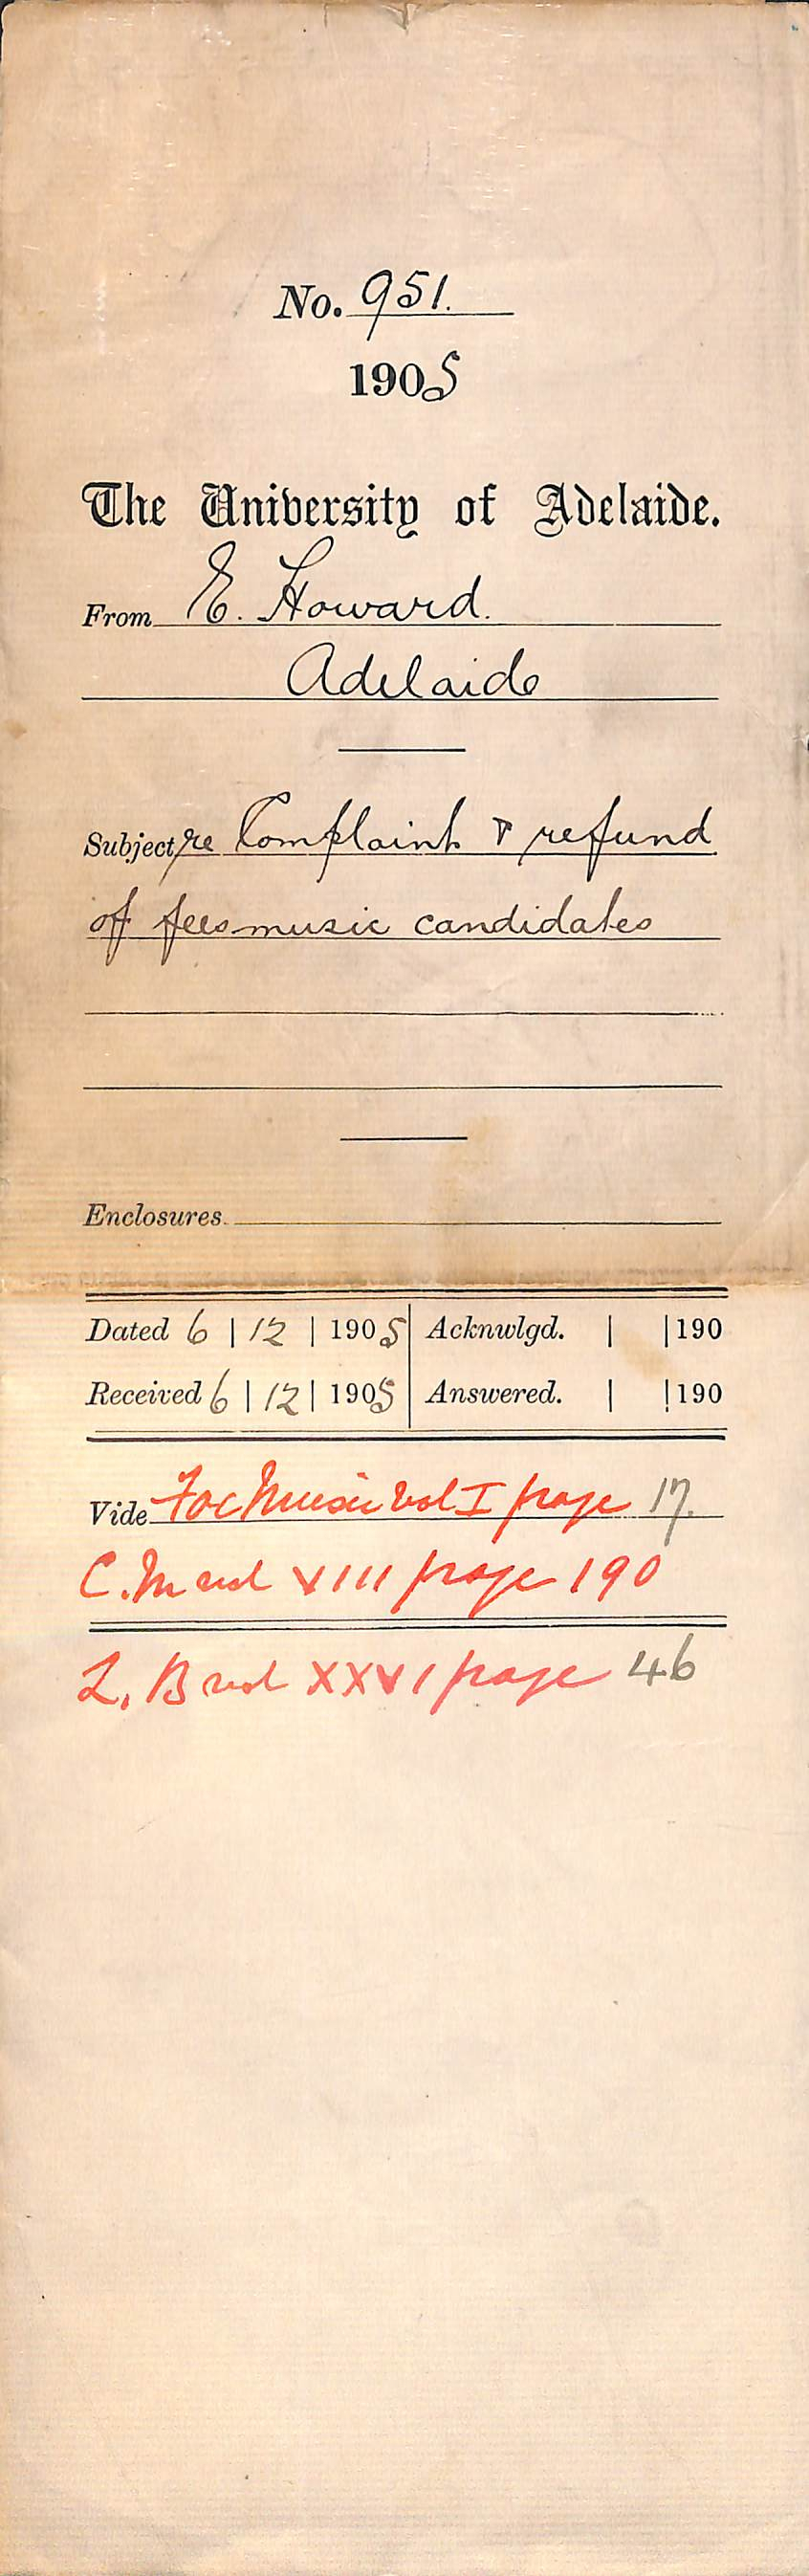 No. 951.
1905
The University of Adelaide.
From E. Howard.
Adelaide
Subject re Complaint & refund
of fees music candidates
Enclosures
Dated 6 | 12 | 1905 Acknwlgd. | | 190
Received 6 | 12 | 1905 Answered. | | 190
Vide Fac Music Vol I page 17.
C. M vol VIII page 190
L. B vol XXVI page 46